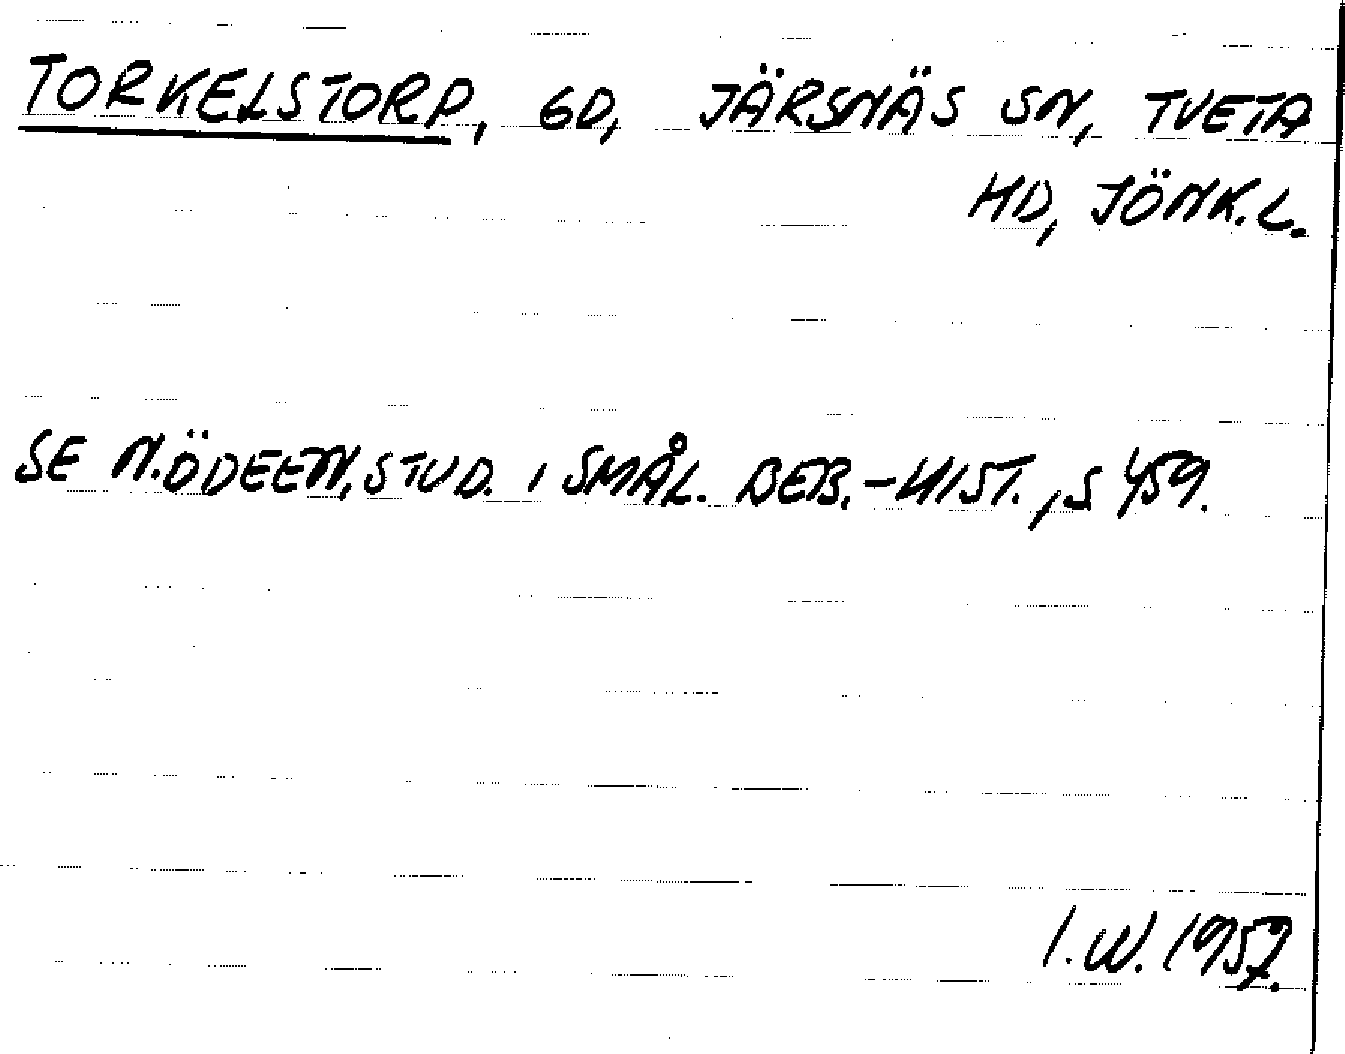 TORKELSTORP, GD, JÄRSNÄS SN, TVETA
HD, JÖNK.L.
SE N.ÖDEEN, STUD. I SMÅL. BEB.-HIST., S 459.
I.W. 1957.